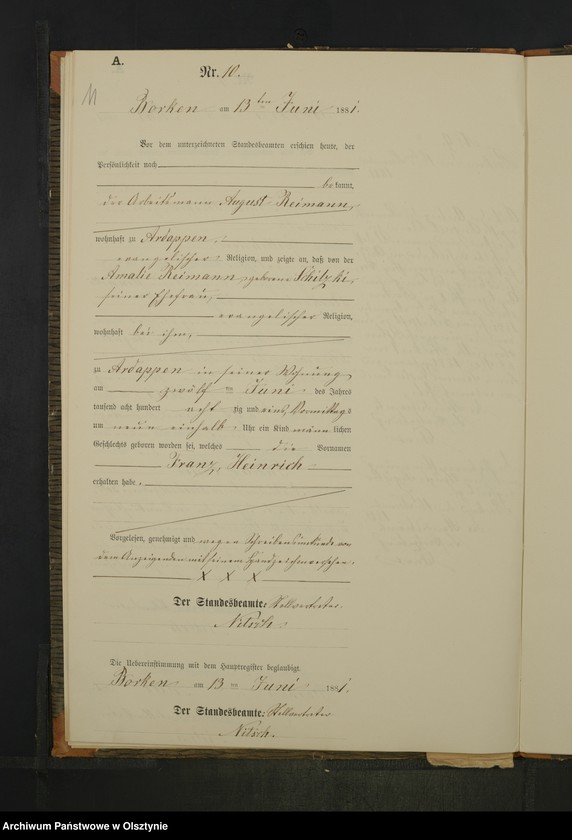 A.
Nr. 10.
11
Borken am 13ten Juni 1881.
Vor dem unterzeichneten Standesbeamten erschien heute, der
Persönlichkeit nach
bekannt,
der Arbeitsmann August Reimann,
wohnhaft zu Ardappen,
evangelischer Religion, und zeigte an, daß von der
Amalie Reimann, geborene Schitzki,
seiner Ehefrau,
evangelischer Religion,
wohnhaft bei ihm,
zu Ardappen in seiner Wohnung,
am zwölf ten Juni des Jahres
tausend acht hundert acht zig und eins, Vormittags
um neun einhalb Uhr ein Kind männlichen
Geschlechts geboren worden sei, welches die Vornamen
Franz, Heinrich
erhalten habe.
Vorgelesen, genehmigt und wegen Schreibensunkunde von
dem Anzeigenden mit seinem Handzeichen versehen.
X X X
Der Standesbeamte: Stellvertreter
Nitsch.
Die Uebereinstimmung mit dem Hauptregister beglaubigt.
Borken am 13ten Juni 1881.
Der Standesbeamte: Stellvertreter
Nitsch.
Archiwum Państwowe w Olsztynie